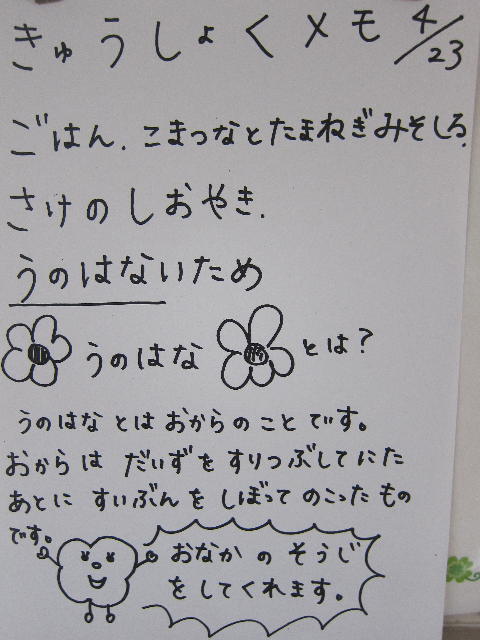 きゅうしょくメモ 4/23
ごはん.こまつなとたまねぎみそしる.
さけのしおやき.
うのはないため
うのはな とは?
うのはなとはおからのことです。
おからは だいずを すりつぶしてにた
あとに すいぶんを しぼって のこったもの
です。
おなかのそうじ
をしてくれます。